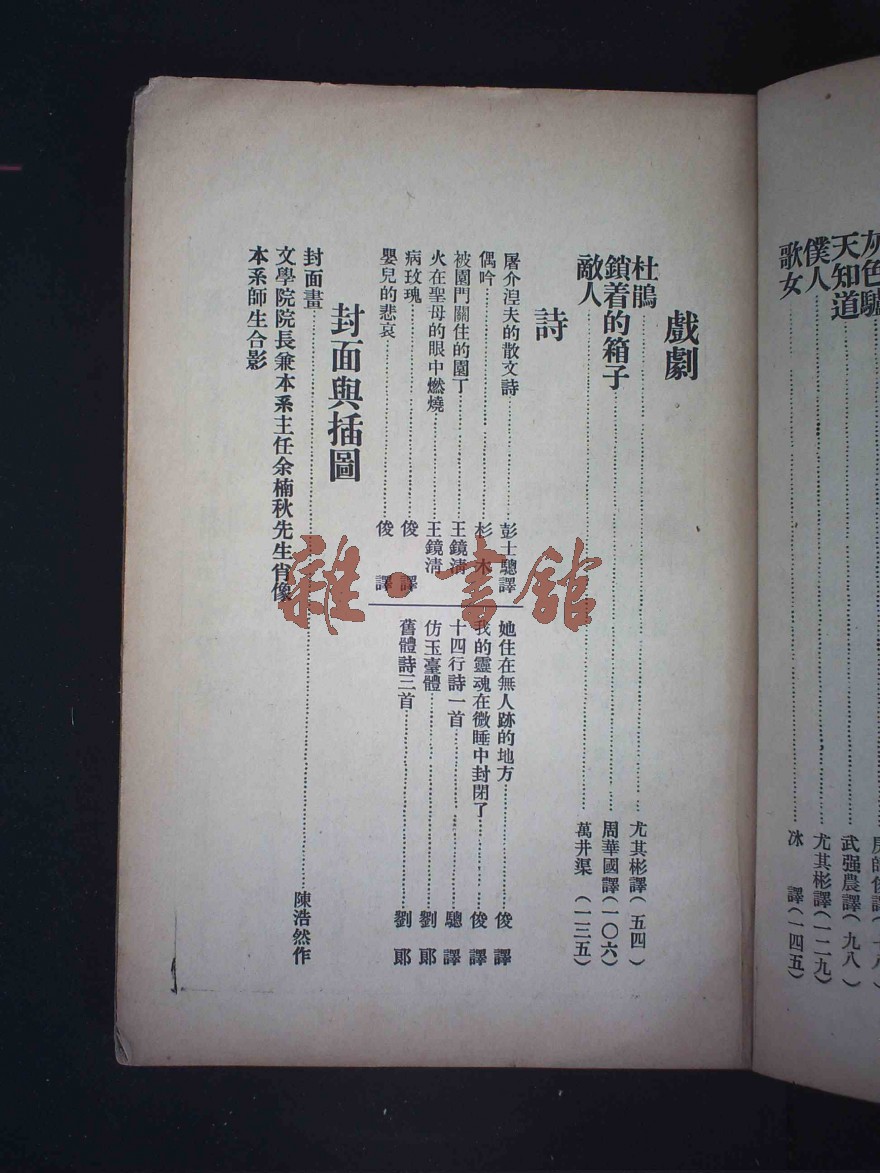 灰色驢
天知道……武强農譯(九八)
僕人……尤其彬譯(一二九)
歌女……冰 譯(一四五)
戲劇
杜鵑……尤其彬譯(五四)
鎖着的箱子……周華國譯(一〇六)
敵人……萬井渠(一三五)
詩
屠介涅夫的散文詩……彭士驄譯
偶吟……杉木
被園門關住的園丁……王鏡淸
火在聖母的眼中燃燒……王鏡淸
病玫瑰……俊 譯
嬰兒的悲哀……俊 譯
她住在無人跡的地方……俊 譯
我的靈魂在微睡中封閉了……俊 譯
十四行詩一首……驄 譯
仿玉臺體……劉 郞
舊體詩三首……劉 郞
封面與插圖
封面畫……陳浩然作
文學院院長兼本系主任余楠秋先生肖像
本系師生合影
雜·書館